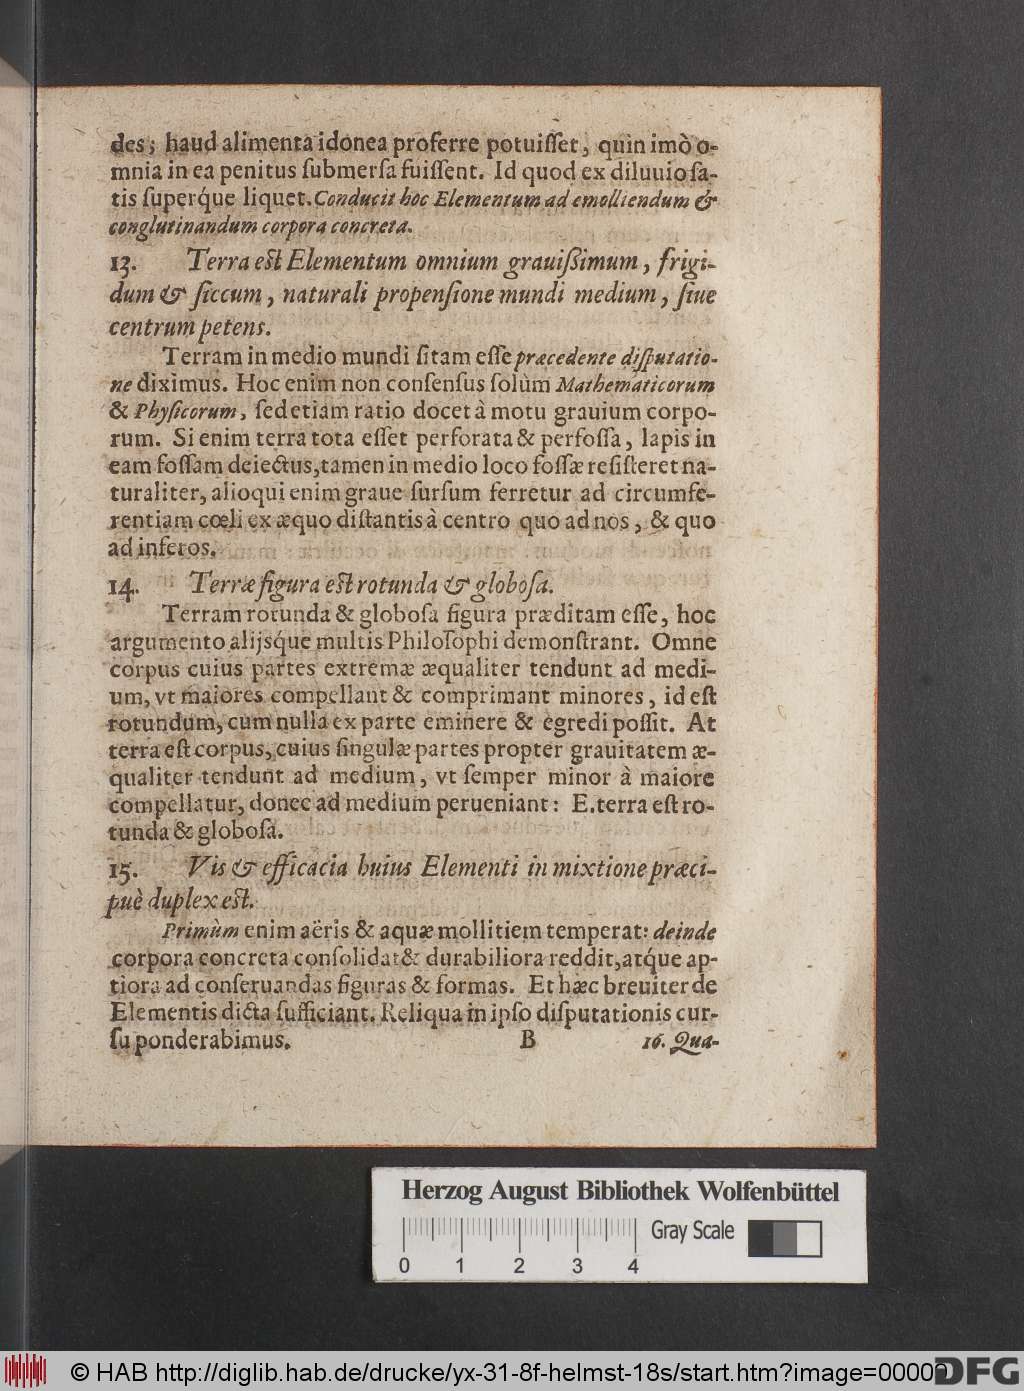 des; haud alimenta idonea proferre potuiſſet, quin imò o-
mnia in ea penitus ſubmerſa fuiſſent. Id quod ex diluuio ſa-
tis ſuperq́ue liquet. Conducit hoc Elementum ad emolliendum &
conglutinandum corpora concreta.
13. Terra eſt Elementum omnium grauiſsimum, frigi-
dum & ſiccum, naturali propenſione mundi medium, ſiue
centrum petens.
Terram in medio mundi ſitam eſſe præcedente diſputatio-
ne diximus. Hoc enim non conſenſus ſolùm Mathematicorum
& Phyſicorum, ſed etiam ratio docet à motu grauium corpo-
rum. Si enim terra tota eſſet perforata & perfoſſa, lapis in
eam foſſam deiectus, tamen in medio loco foſſæ reſiſteret na-
turaliter, alioqui enim graue ſurſum ferretur ad circumfe-
rentiam cœli ex æquo diſtantis à centro quo ad nos, & quo
ad inferos.
14. Terræ figura eſt rotunda & globoſa.
Terram rotunda & globoſa figura præditam eſſe, hoc
argumento alijsq́ue multis Philoſophi demonſtrant. Omne
corpus cuius partes extremæ æqualiter tendunt ad medi-
um, vt maiores compellant & comprimant minores, id eſt
rotundum, cum nulla ex parte eminere & egredi poſſit. At
terra eſt corpus, cuius ſingulæ partes propter grauitatem æ-
qualiter tendunt ad medium, vt ſemper minor à maiore
compellatur, donec ad medium perueniant: E. terra eſt ro-
tunda & globoſa.
15. Vis & efficacia huius Elementi in mixtione præci-
puè duplex eſt.
Primùm enim aëris & aquæ mollitiem temperat: deinde
corpora concreta conſolidat & durabiliora reddit, atq́ue ap-
tiora ad conſeruandas figuras & formas. Et hæc breuiter de
Elementis dicta ſufficiant. Reliqua in ipſo diſputationis cur-
ſu ponderabimus. B 16. Qua-
Herzog August Bibliothek Wolfenbüttel
Gray Scale
0 1 2 3 4
© HAB http://diglib.hab.de/drucke/yx-31-8f-helmst-18s/start.htm?image=00009
DFG